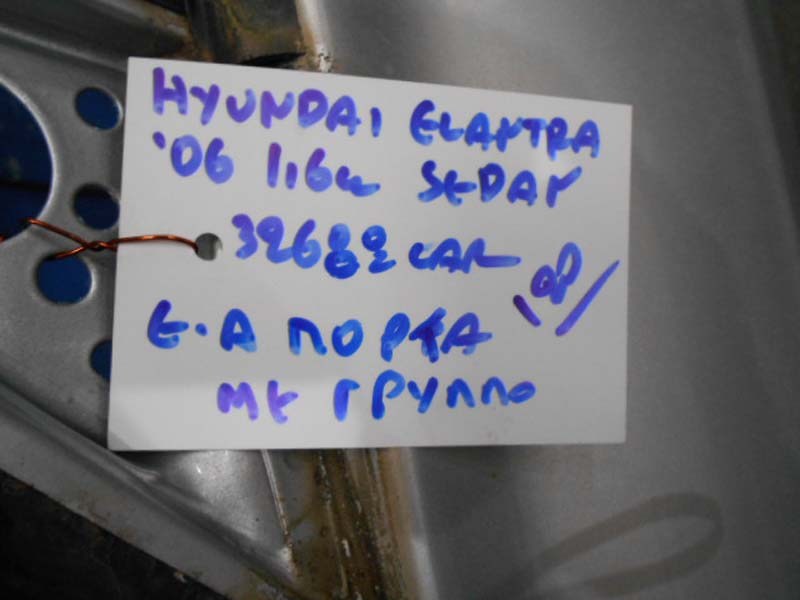 HYUNDAI ELANTRA
'06 1,6cc SEDAN
32682 CAR
E.A ΠΟΡΤΑ
ΜΕ ΓΡΥΛΛΟ